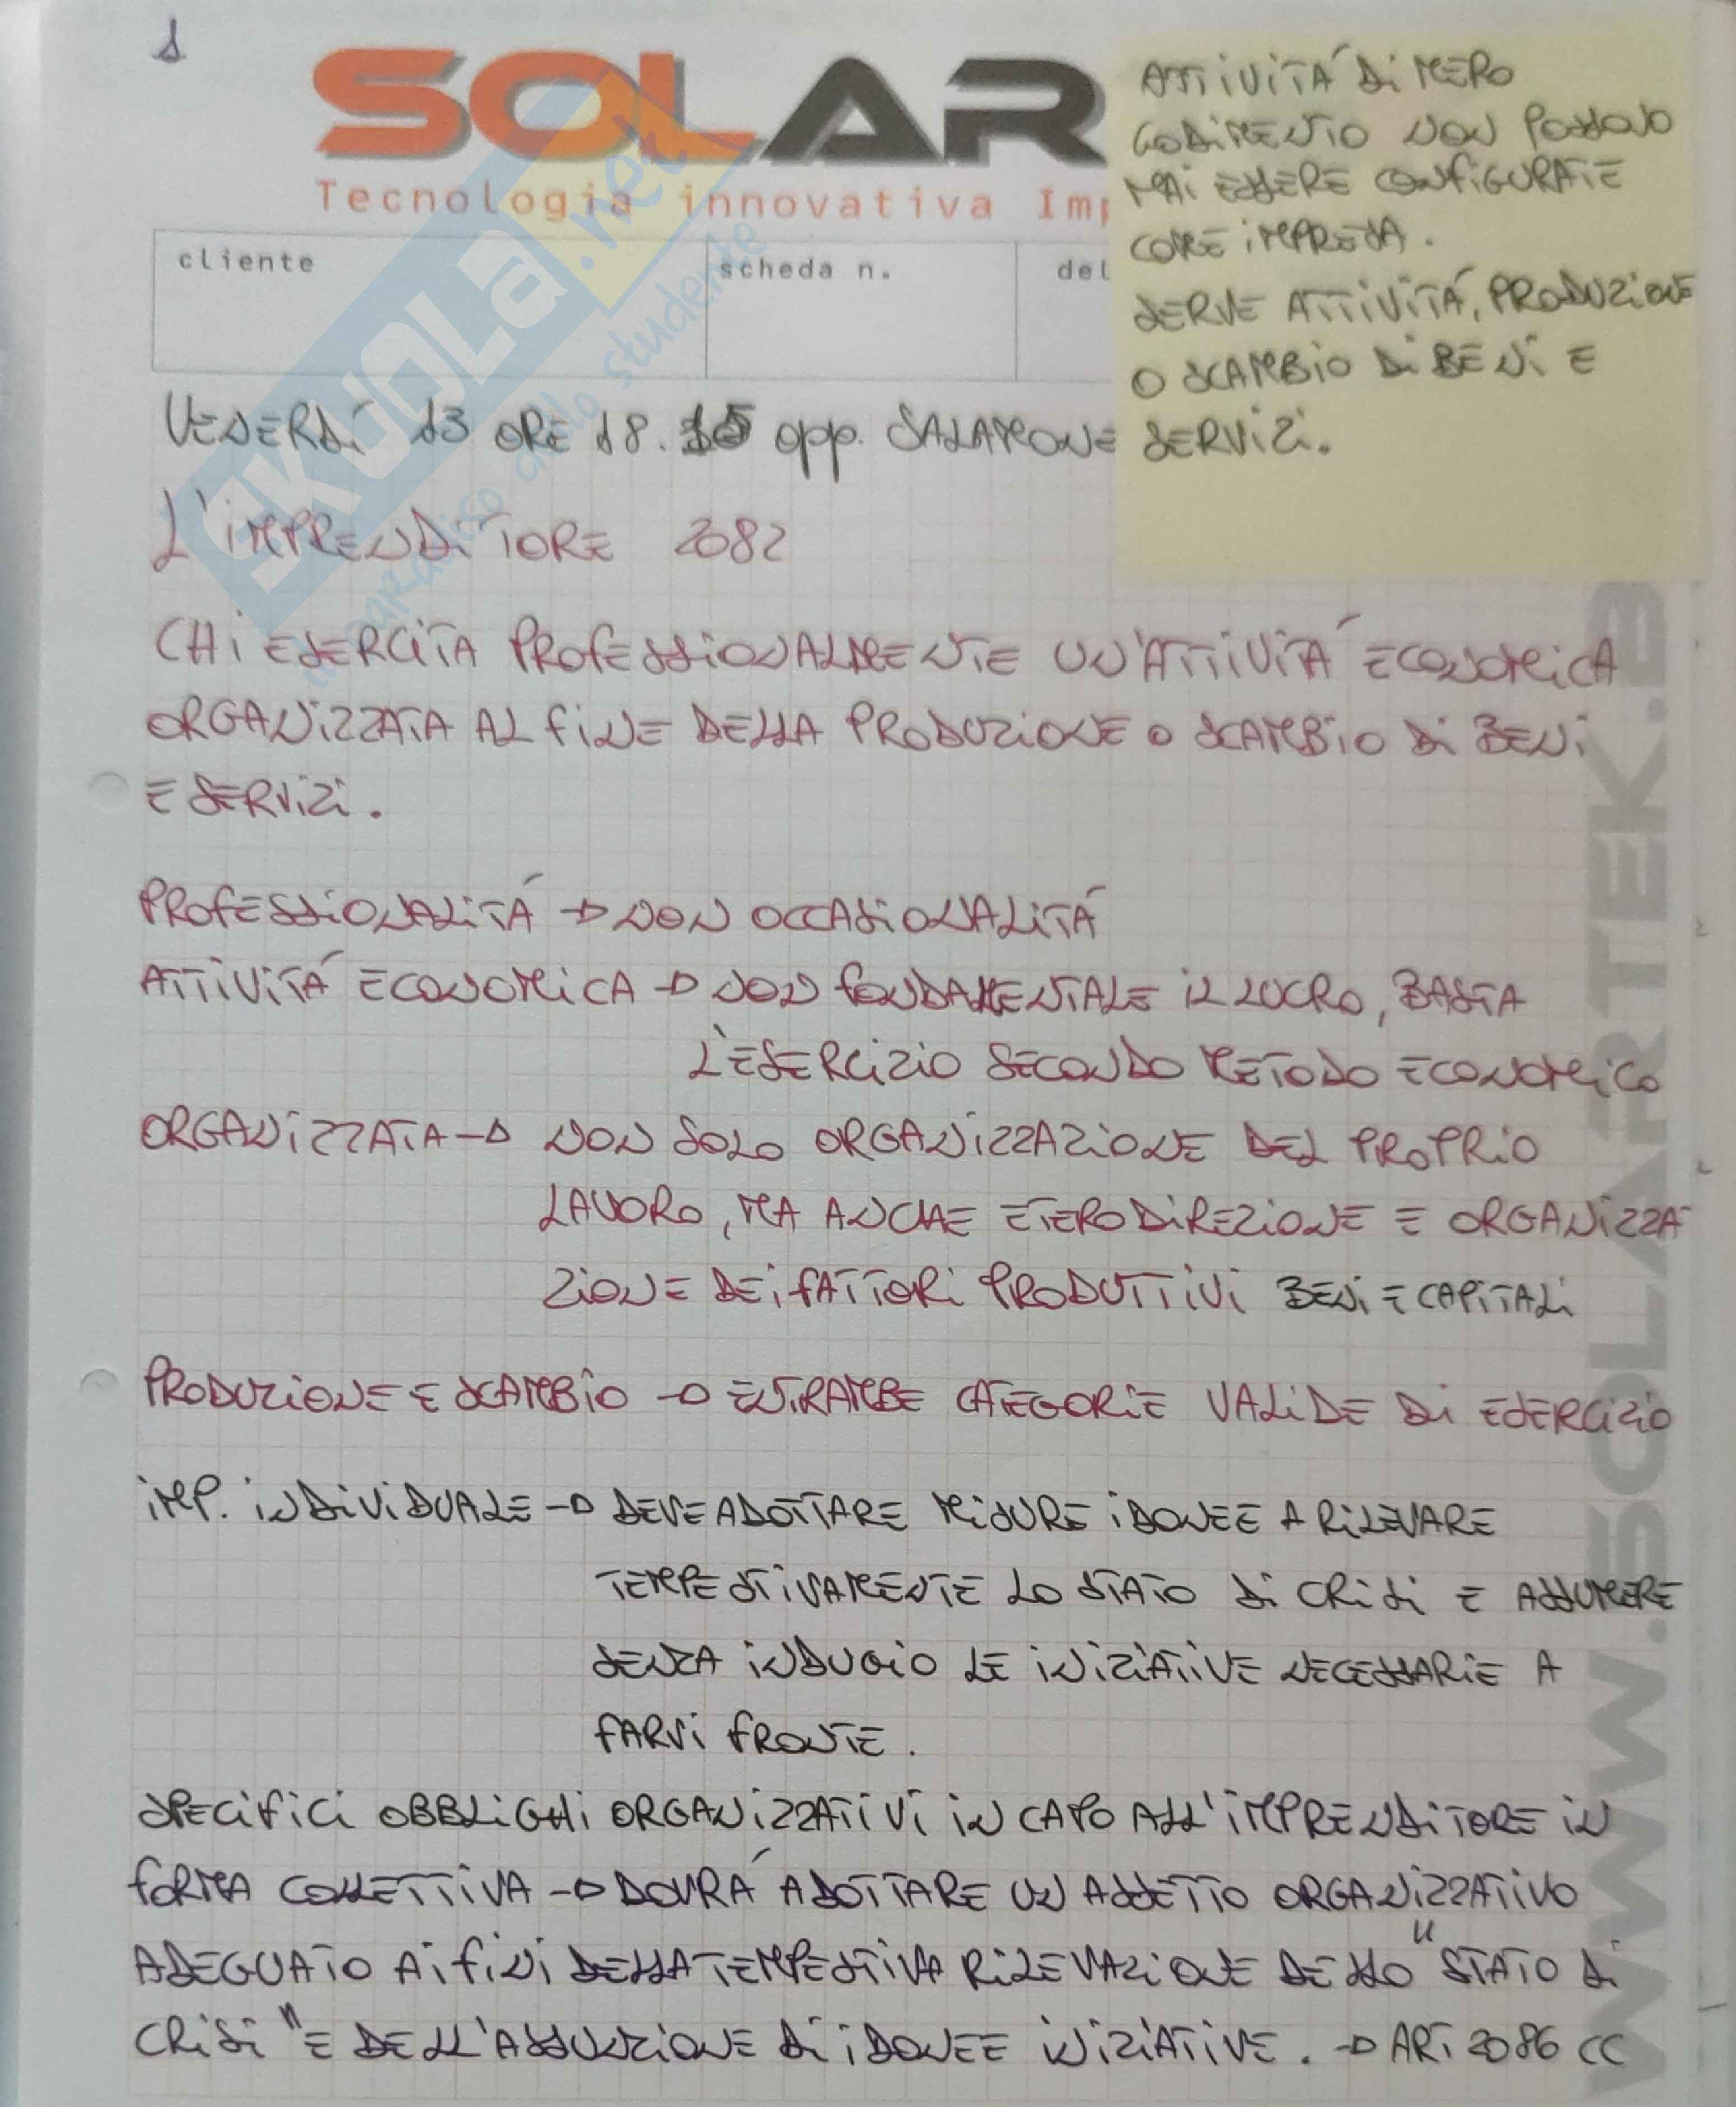 1
SOLAR
Tecnologia innovativa Imp
cliente
scheda n.
del
ATTIVITÁ DI MERO
GODIMENTO NON POSSONO
MAI ESSERE CONFIGURATE
COME IMPRESA.
SERVE ATTIVITÁ, PRODUZIONE
O SCAMBIO DI BENI E
SERVIZI.
VENERDÍ 13 ORE 18.15 opp. SALAMONE
L'IMPRENDITORE 2082
CHI ESERCITA PROFESSIONALMENTE UN'ATTIVITÁ ECONOMICA
ORGANIZZATA AL FINE DELLA PRODUZIONE O SCAMBIO DI BENI
E SERVIZI.
PROFESSIONALITÁ → NON OCCASIONALITÁ
ATTIVITÁ ECONOMICA → NON FONDAMENTALE IL LUCRO, BASTA
L'ESERCIZIO SECONDO METODO ECONOMICO
ORGANIZZATA → NON SOLO ORGANIZZAZIONE DEL PROPRIO
LAVORO, MA ANCHE ETERODIREZIONE E ORGANIZZA-
ZIONE DEI FATTORI PRODUTTIVI BENI E CAPITALI
PRODUZIONE E SCAMBIO → ENTRAMBE CATEGORIE VALIDE DI ESERCIZIO
IMP. INDIVIDUALE → DEVE ADOTTARE MISURE IDONEE A RILEVARE
TEMPESTIVAMENTE LO STATO DI CRISI E ASSUMERE
SENZA INDUGIO LE INIZIATIVE NECESSARIE A
FARVI FRONTE.
SPECIFICI OBBLIGHI ORGANIZZATIVI IN CAPO ALL'IMPRENDITORE IN
FORMA COLLETTIVA → DOVRÁ ADOTTARE UN ASSETTO ORGANIZZATIVO
ADEGUATO AI FINI DELLA TEMPESTIVA RILEVAZIONE DELLO "STATO DI
CRISI" E DELL'ASSUNZIONE DI IDONEE INIZIATIVE. → ART 2086 CC
WWW.SOLARTEK.B
SKUOLA.net
il paradiso dello studente